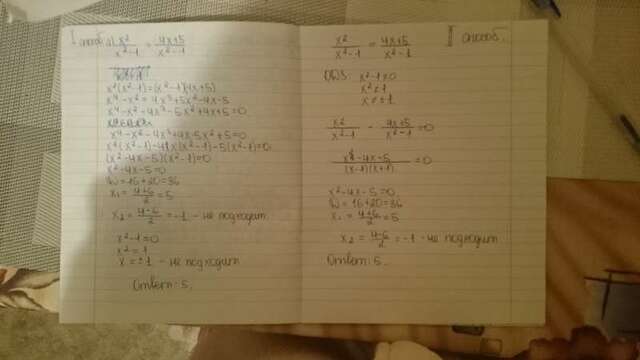 I способ
а) x²/(x²-1) = (4x+5)/(x²-1)
x²(x²-1)=(x²-1)(4x+5)
x⁴-x²=4x³+5x²-4x-5
x⁴-x²-4x³-5x²+4x+5=0
x⁴-x²-4x³+4x-5x²+5=0
x²(x²-1)-4x(x²-1)-5(x²-1)=0
(x²-4x-5)(x²-1)=0
x²-4x-5=0
=16+20=36
x₁=(4+6)/2=5
x₂=(4-6)/2=-1 - не подходит
x²-1=0
x²=1
x=±1 - не подходит
Ответ: 5.
II способ.
x²/(x²-1) = (4x+5)/(x²-1)
ОДЗ x²-1≠0
x²≠1
x≠±1
x²/(x²-1) - (4x+5)/(x²-1) =0
(x²-4x-5)/((x-1)(x+1)) =0
x²-4x-5=0
=16+20=36
x₁=(4+6)/2=5
x₂=(4-6)/2=-1 - не подходит
Ответ: 5.